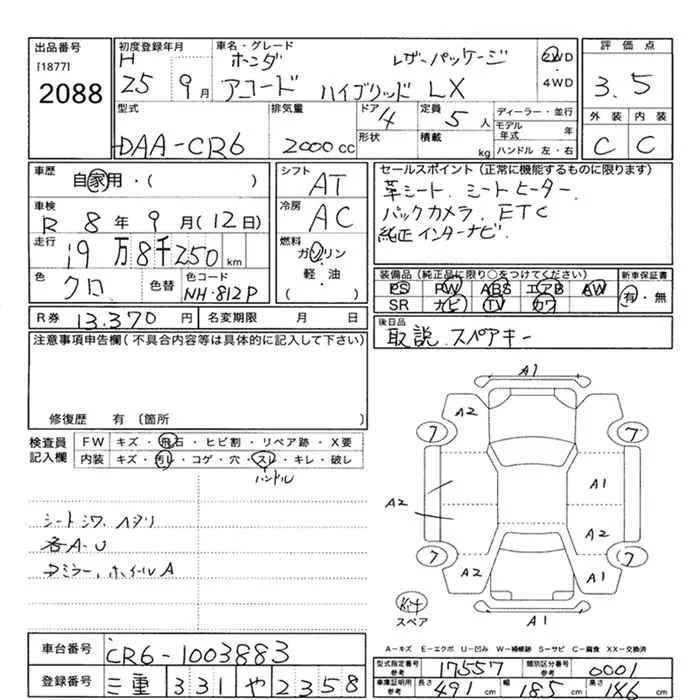 出品番号
[1877]
2088
初度登録年月
H 25 9月
車名・グレード
ホンダ レザーパッケージ
アコード ハイブリッド LX
2WD
・
4WD
評価点
3.5
外装 内装
C C
型式
DAA-CR6
排気量
2000cc
ドア 4
形状
定員 5人
積載 kg
ディーラー・並行
モデル年式 年
ハンドル 左・右
車歴
自家用・( )
車検
R 8年 9月(12日)
走行
19万8千250km
色
クロ
色替
色コード
NH-812P
シフト
AT
冷房
AC
燃料
ガソリン
・
軽・油
( )
セールスポイント(正常に機能するものに限ります)
革シート、シートヒーター、
バックカメラ、ETC
純正インターナビ、
装備品(純正品に限り○をつけてください)
PS PW ABS エアB AW
SR ナビ TV カワ
新車保証書
有・無
R券 13,370円
名変期限 月 日
後日品
取説、スペアキー
注意事項申告欄(不具合内容等は具体的に記入して下さい)
修復歴 有〔箇所 〕
検査員
記入欄
FW キズ・飛石・ヒビ割・リペア跡・X要
内装 キズ・汚レ・コゲ・穴・スレ・キレ・破レ
ハンドル
シートシワ、ヘタリ
各A-U
ホイールA
A1
A2
7 7
A1
A2
A2
7 7
A2 A1
A1
Kit
スペア
A-キズ E-エクボ U-凹み W-補修跡 S-サビ C-腐食 XX-交換済
車台番号 CR6-1003883
登録番号 三重 331 や 2358
型式指定番号
参考
17557
類別区分番号
参考
0001
車庫証明用
参考
長さ 491cm 幅 185cm 高さ 146cm